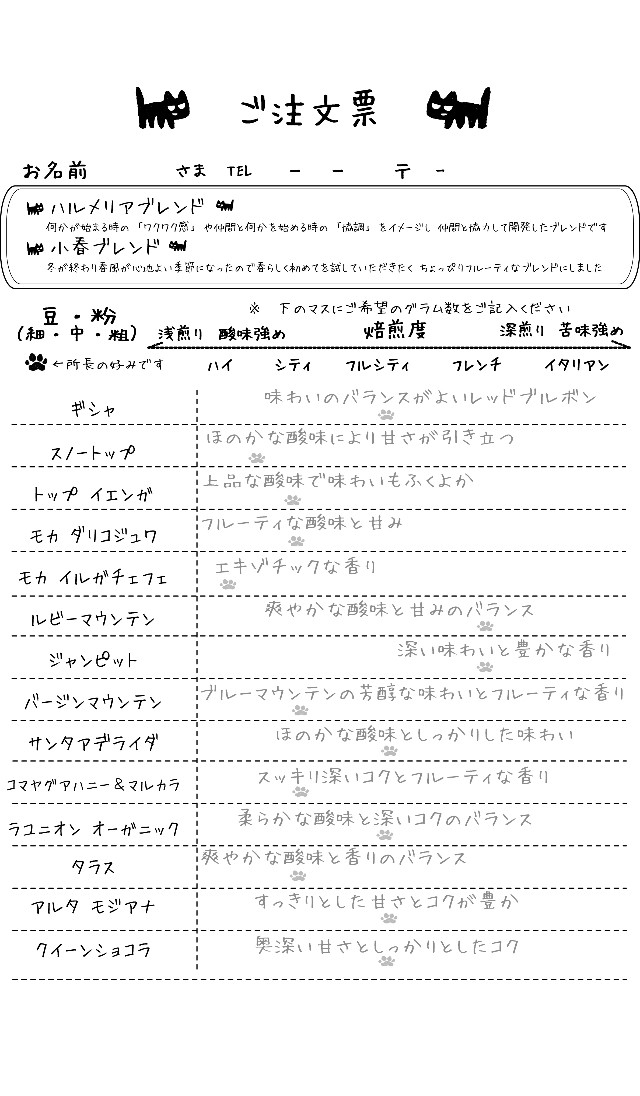 ご注文票
お名前 さま TEL ー ー 〒 ー
ハルメリアブレンド
何かが始まる時の「ワクワク感」や仲間と何かを始める時の「協調」をイメージし 仲間と協力して開発したブレンドです
小春ブレンド
冬が終わり春風が心地よい季節になったので春らしく初めてを試していただきたく ちょっぴりフルーティなブレンドにしました
※ 下のマスにご希望のグラム数をご記入ください
豆・粉
(細・中・粗)
浅煎り 酸味強め 焙煎度 深煎り 苦味強め
←所長の好みです ハイ シティ フルシティ フレンチ イタリアン
ギシャ 味わいのバランスがよいレッドブルボン
スノートップ ほのかな酸味により甘さが引き立つ
トップ イエンガ 上品な酸味で味わいもふくよか
モカ ダリコジュワ フルーティな酸味と甘み
モカ イルガチェフェ エキゾチックな香り
ルビーマウンテン 爽やかな酸味と甘みのバランス
ジャンピット 深い味わいと豊かな香り
バージンマウンテン ブルーマウンテンの芳醇な味わいとフルーティな香り
サンタアデライダ ほのかな酸味としっかりした味わい
コマヤグアハニー&マルカラ スッキリ深いコクとフルーティな香り
ラユニオン オーガニック 柔らかな酸味と深いコクのバランス
タラス 爽やかな酸味と香りのバランス
アルタ モジアナ すっきりとした甘さとコクが豊か
クイーンショコラ 奥深い甘さとしっかりとしたコク